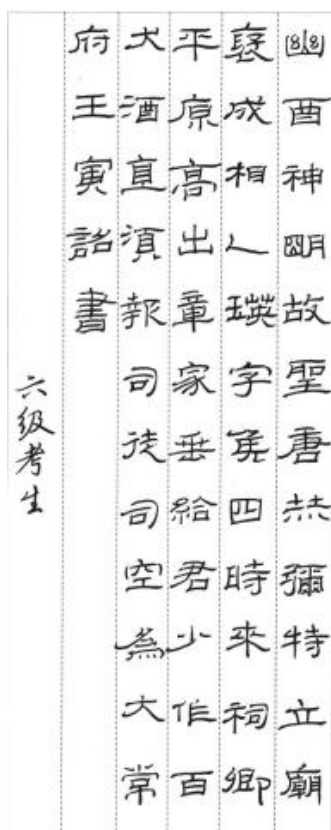 幽酉神明故聖唐恭彌特立廟
褒成相人瑛字侯四時來祠卿
平原高出章家垂給君少作百
犬酒直須報司徒司空為大常
府壬寅詔書
六级考生